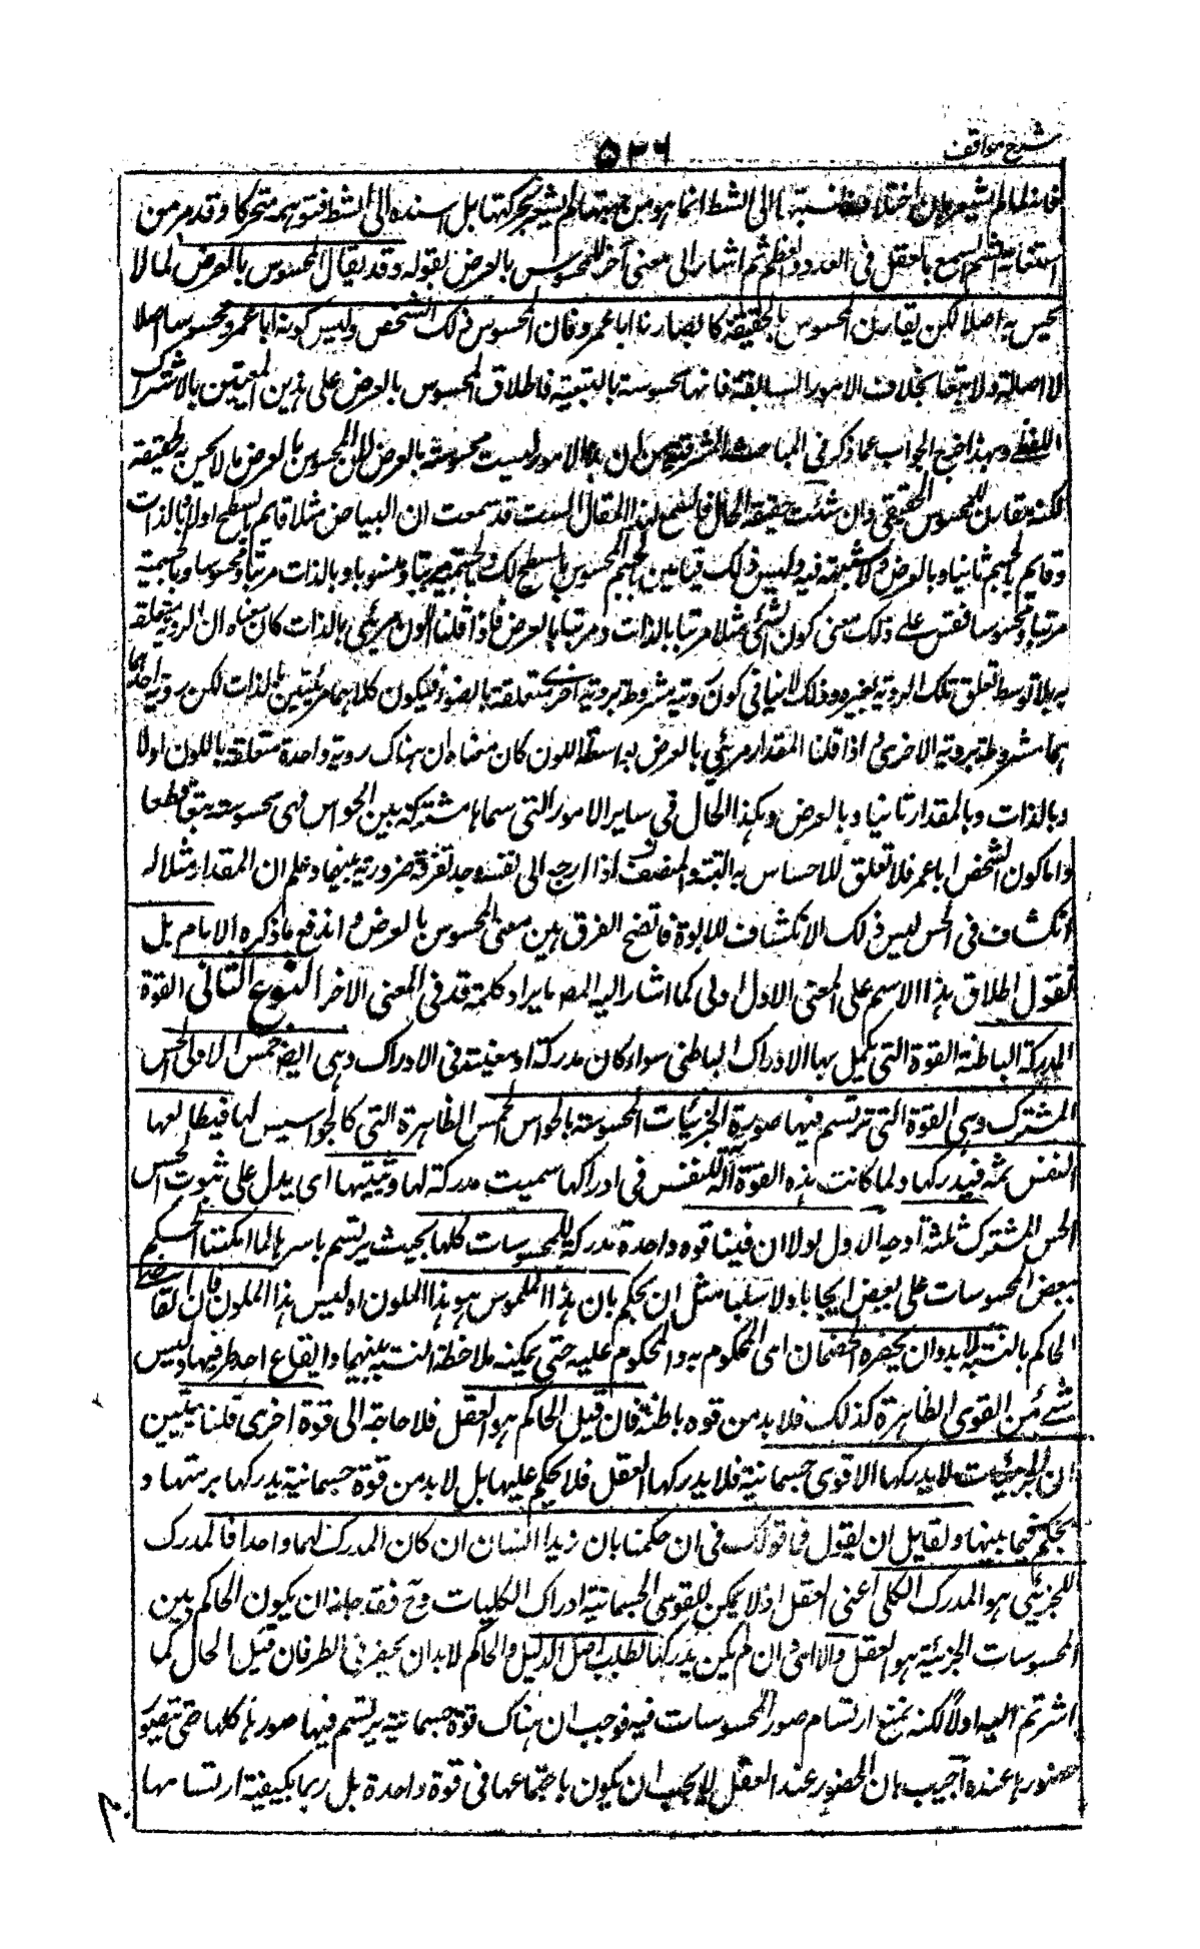 شرح مواقف
٥٣٦
لم يشعر بان اختلاف نسبة الى الشط انما هو من جهتها لم يشعر بحركتها بل اسنده الى الشط فتوهمه متحركا وقد مر من
استعانة الشم السمع بالعقل فى العدد والعظم ثم اشار الى معنى آخر للمحسوس بالعرض بقوله وقد يقال المحسوس بالعرض لما لا
يحس به اصلا لكن يقارن المحسوس بالحقيقة كابصارنا ابا عمرو فان المحسوس ذلك الشخص وليس كونه ابا عمرو محسوسا اصلا
لا اصالة ولا تبعا بخلاف الامور السابقة فانها محسوسة بالتبعية فاطلاق المحسوس بالعرض على هذين المعنيين بالاشتراك
اللفظى وبهذا خرج الجواب عما ذكر فى المباحث المشرقية من ان هذه الامور ليست محسوسة بالعرض لان المحسوس بالعرض ما لا يحس به حقيقة
لكنه مقارن للمحسوس الحقيقى وان شئت حقيقة الحال فاسمع لهذا المقال الست قد سمعت ان البياض مثلا قايم بالسطح اولا وبالذات
وقايم بالجسم ثانيا وبالعرض ولا شبهة فيه وليس ذلك قيامين
مرئيا ومحسوسا فقس على ذلك معنى كون الشئ مثلا مرئيا بالذات ومرئيا بالعرض فاذا قلنا اللون مرئى بالذات كان معناه ان الروية متعلقة
به بلا توسط تعلق تلك الروية بغيره وذلك لا ينافى كون رويته مشروطة بروية اخرى متعلقة بالضوء فيكون كلاهما مرئيين بالذات لكن روية احدهما
مشروطة بروية الاخرى واذا قلنا المقدار مرئى بالعرض بواسطة اللون كان معناه ان هناك روية واحدة متعلقة باللون اولا
وبالذات وبالمقدار ثانيا وبالعرض وهكذا الحال فى ساير الامور التى سماها مشتركة بين الحواس فهى محسوسة تبعا قطعا
واما كون الشخص ابا عمرو فلا تعلق للاحساس به البتة والمنصف اذا رجع الى نفسه وجد تفرقة ضرورية بينهما وعلم ان المقدار مثلا له
انكشاف فى الحس ليس ذلك الانكشاف للابوة فاتضح الفرق بين معنى المحسوس بالعرض واندفع ما ذكره الامام بل
نقول اطلاق هذا الاسم على المعنى الاول اولى كما اشار اليه المص بايراد كلمة قد فى المعنى الاخر النوع الثانى القوة
المدركة الباطنة القوة التى يكمل بها الادراك الباطنى سواء كان مدركة او معينة فى الادراك وهى ايض خمس الاولى الحس
المشترك وهى القوة التى ترتسم فيها صورة الجزئيات المحسوسة بالحواس الخمس الظاهرة التى كالجواسيس لها فيطالعها
النفس ثمه فيدركها ولما كانت هذه القوة آلة للنفس فى ادراكها سميت مدركة لها ويثبتها اى يدل على ثبوت الحس
الحس المشترك ثلثة اوجه الاول لولا ان فينا قوة واحدة مدركة للمحسوسات كلها بحيث يرتسم باسرها لما امكننا الحكم
ببعض المحسوسات على بعض ايجابا ولا سلبا مثل ان نحكم بان هذا الملموس هو هذا الملون او ليس هذا الملون فان القاضى
الحاكم بالنسبة لابد وان يحضره الخصمان اى المحكوم به والمحكوم عليه حتى يمكنه ملاحظة النسبة بينهما وايقاع احد طرفيها وليس
شئ من القوى الظاهرة كذلك فلا بد من قوة باطنة فان قيل الحاكم هو العقل فلا حاجة الى قوة اخرى قلنا سنبين
ان الجزئيات لا يدركها الا قوى جسمانية فلا يدركها العقل فلا يحكم عليها بل لا بد من قوة جسمانية يدركها برمتها و
يحكم فيما بينها ولقايل ان يقول فما قولك فى ان حكمنا بان زيدا انسان ان كان المدرك لهما واحدا فالمدرك
للجزئى هو المدرك الكلى اعنى العقل اذ لا يمكن للقوى الجسمانية ادراك الكليات وح فقد جاز ان يكون الحاكم بين
المحسوسات الجزئية هو العقل والا اى وان لم يكن يدركها لطلب اصل الدليل والحاكم لابد ان يحضره الطرفان قيل الحال كما
اشرتم اليه اولا لكنه يمتنع ارتسام صور المحسوسات فيه فوجب ان هناك قوة جسمانية يرتسم فيها صورها كلها حتى يتصور
حضورها عنده اجيب بان الحضور عند العقل لا يجب ان يكون باجتماعها فى قوة واحدة بل ربما بكيفية ارتسامها